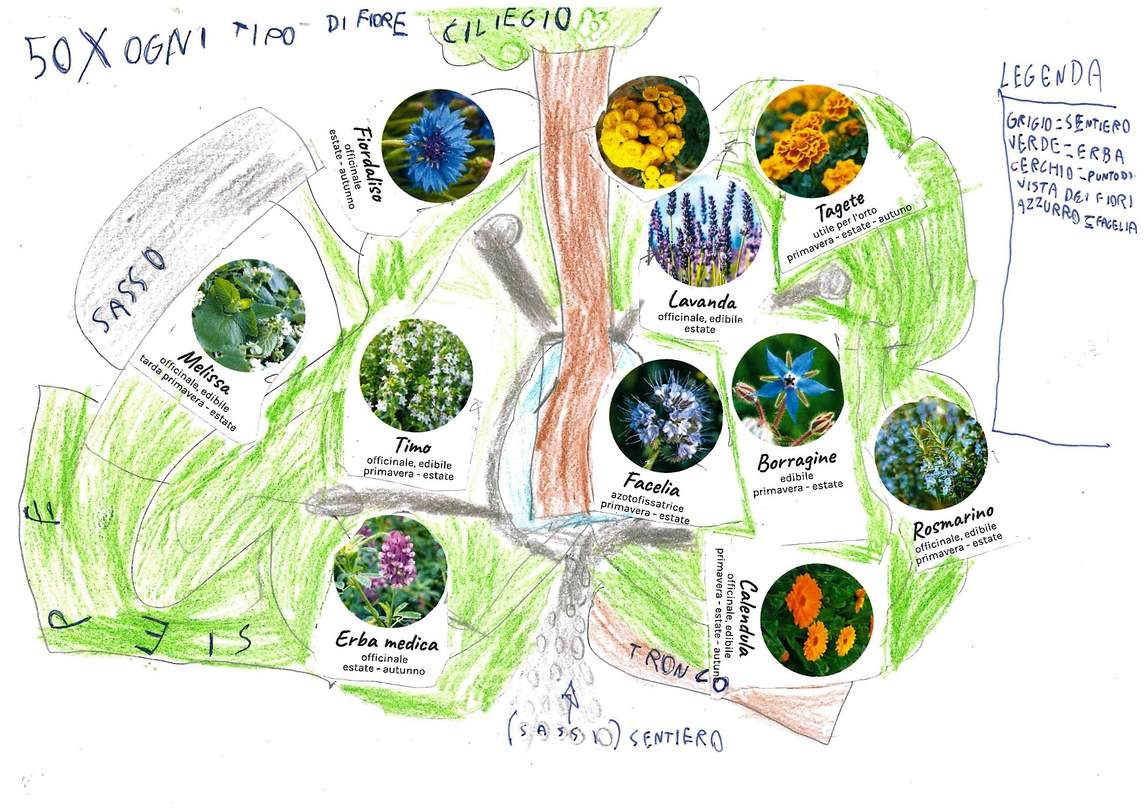 50 X OGNI TIPO DI FIORE
CILIEGIO
LEGENDA
GRIGIO = SENTIERO
VERDE = ERBA
CERCHIO = PUNTO DI
VISTA DEI FIORI
AZZURRO = FACELIA
Fiordaliso
officinale
estate - autunno
Tagete
utile per l'orto
primavera - estate - autuno
Lavanda
officinale, edibile
estate
SASSO
Melissa
officinale, edibile
tarda primavera - estate
Timo
officinale, edibile
primavera - estate
Facelia
azotofissatrice
primavera - estate
Borragine
edibile
primavera - estate
Rosmarino
officinale, edibile
primavera - estate
Erba medica
officinale
estate - autunno
Calendula
officinale, edibile
primavera - estate - autun
SIEPE
TRONCO
(SASSI) SENTIERO